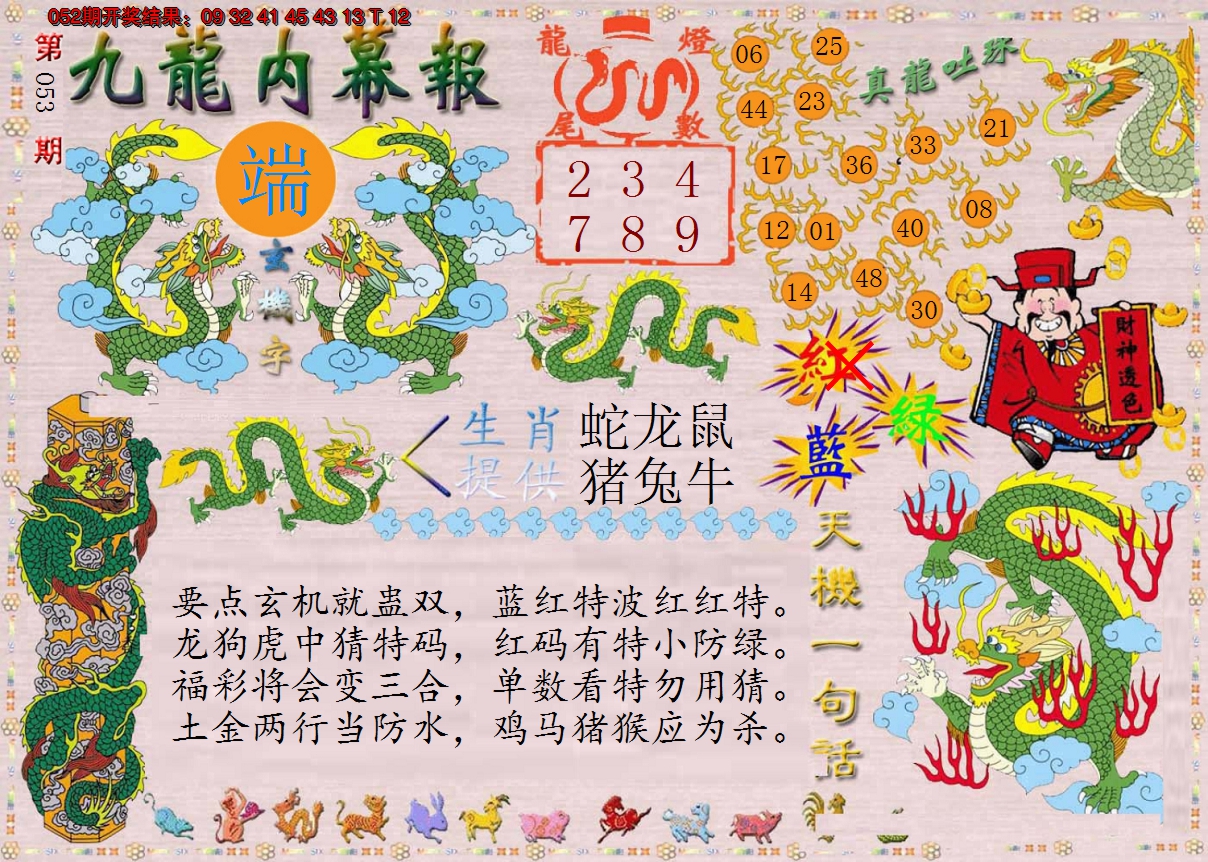 052期开奖结果：09 32 41 45 43 13 T 12
第
053
期
九龍内幕報
端
玄
機
字
龍 燈
尾 數
2 3 4
7 8 9
真龍吐珠
06
25
44
23
21
33
17
36
08
12
01
40
48
14
30
財神透色
紅
绿
藍
生肖
提供
蛇龙鼠
猪兔牛
天機一句话
要点玄机就蛊双，蓝红特波红红特。
龙狗虎中猜特码，红码有特小防绿。
福彩将会变三合，单数看特勿用猜。
土金两行当防水，鸡马猪猴应为杀。